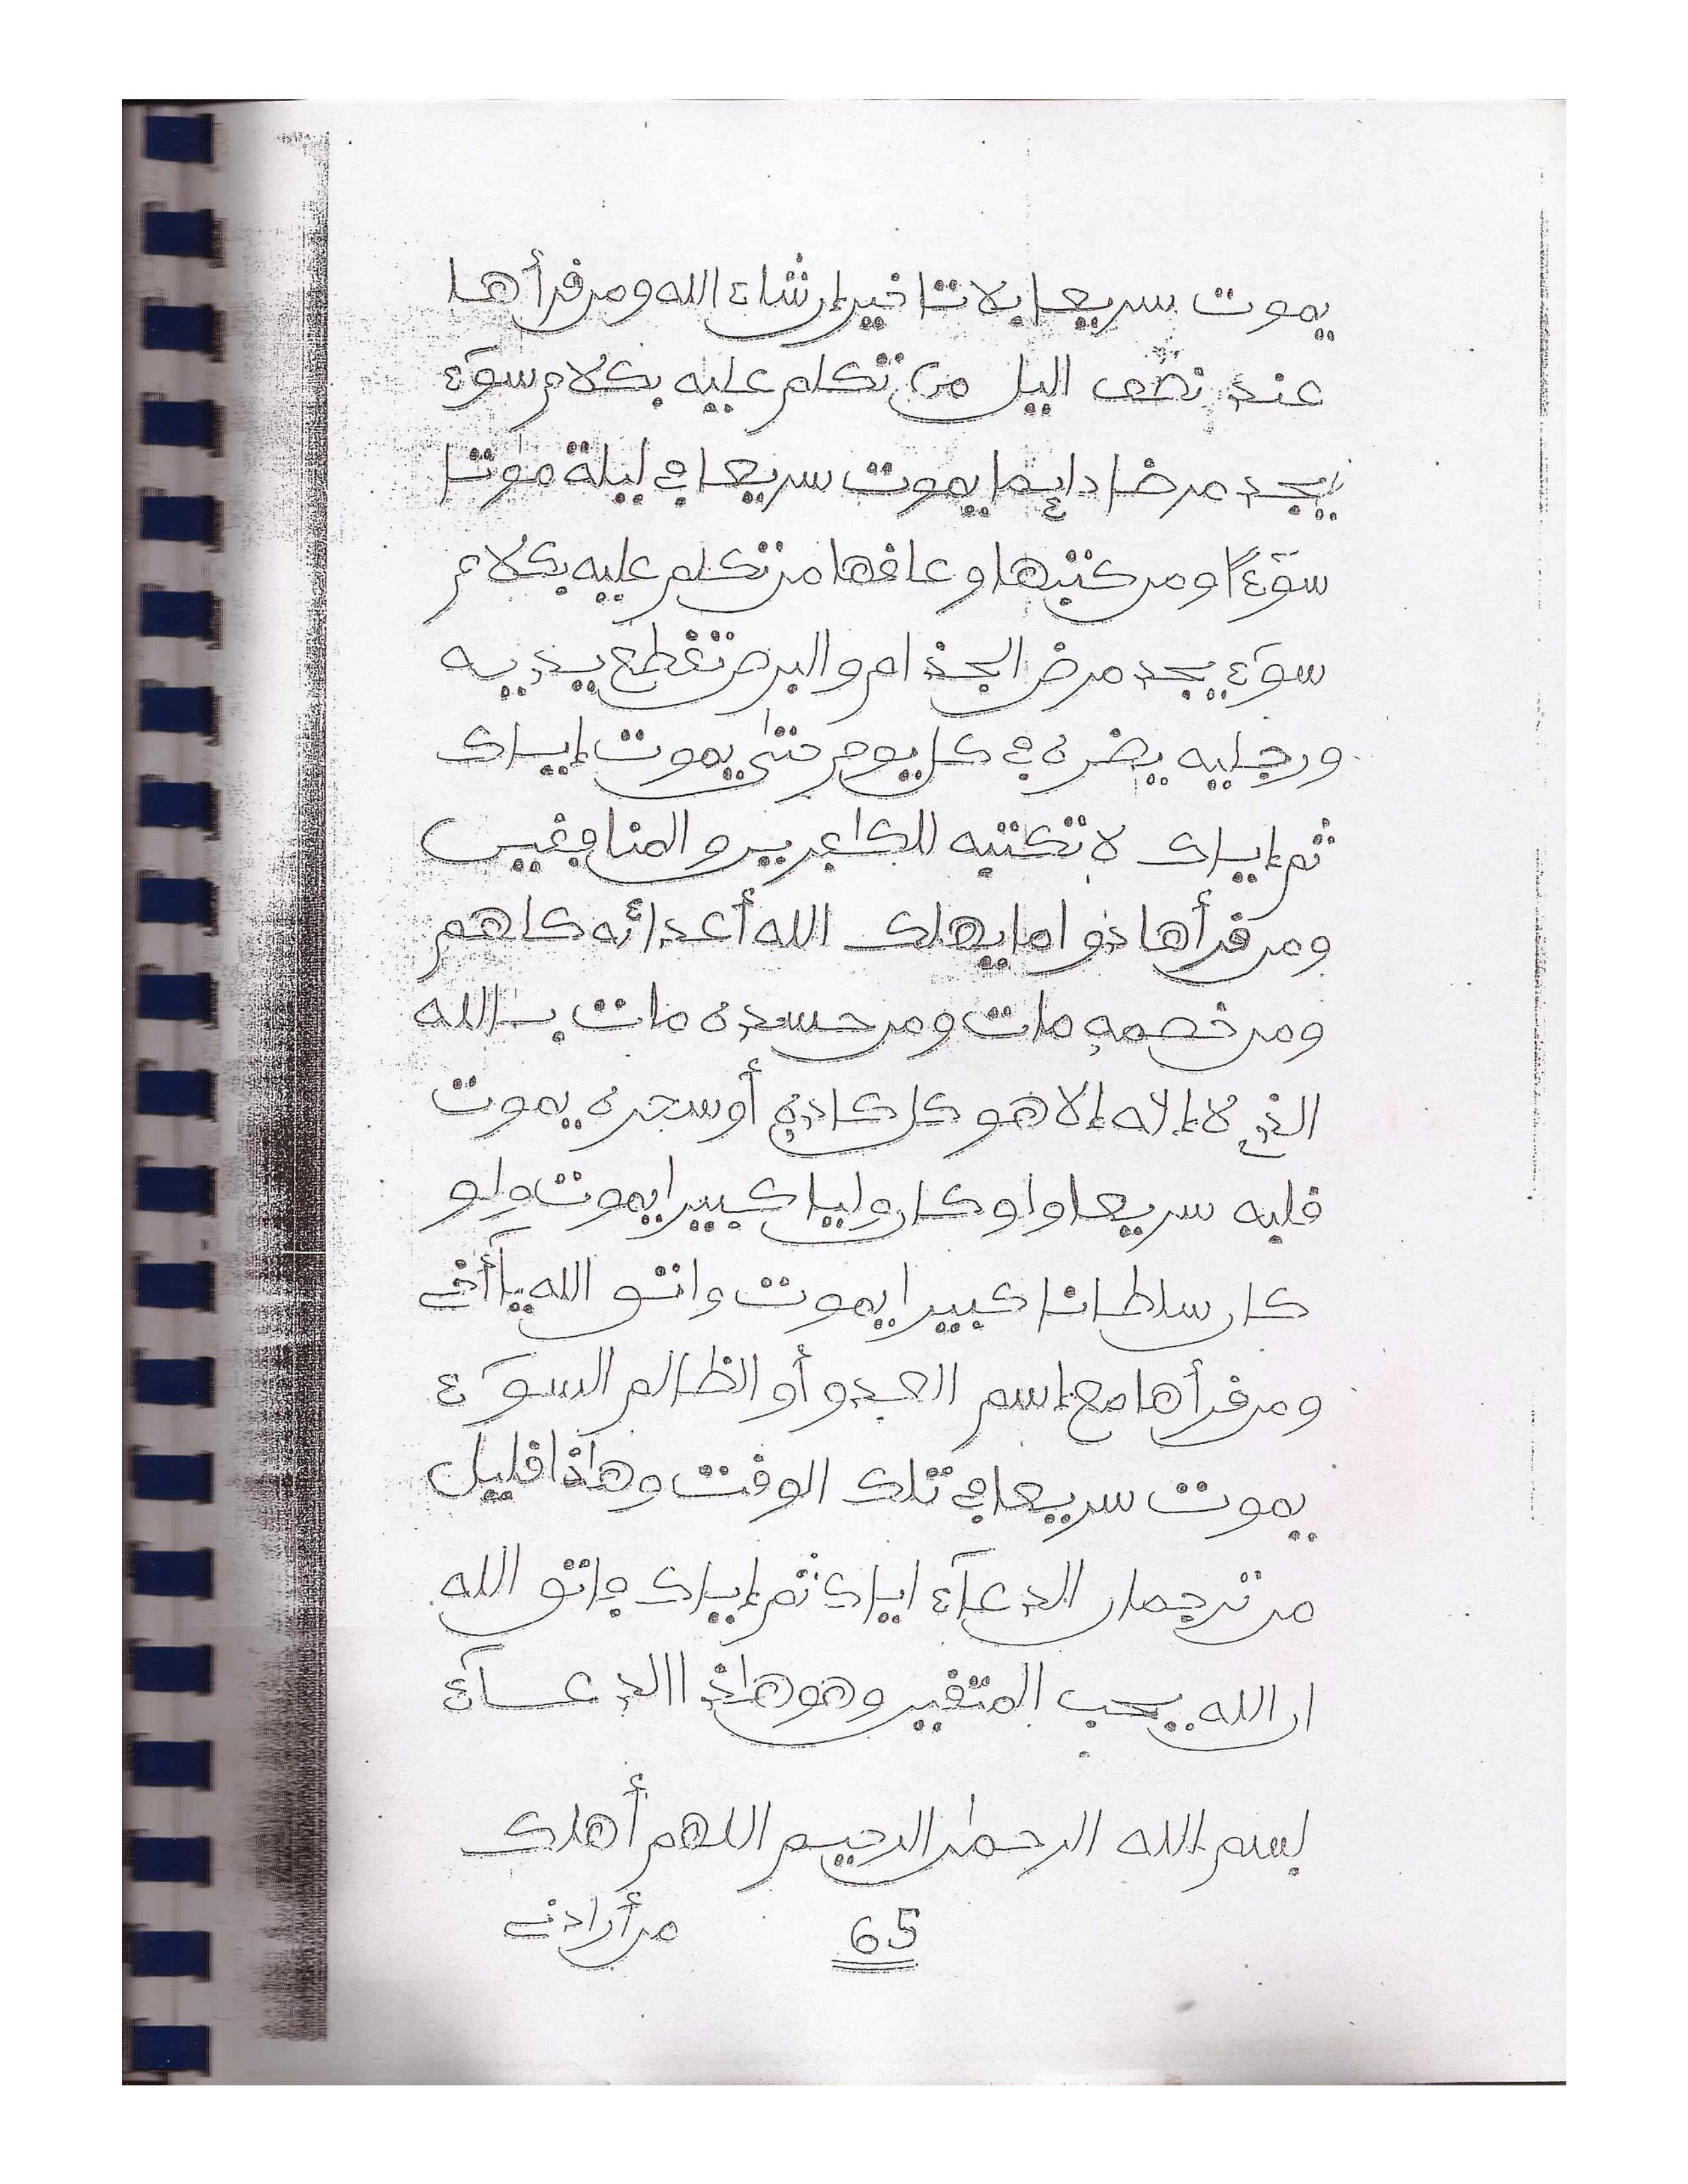 يموت سريعا بلا تاخير إن شاء الله ومن قرأها
عند نصف اليل من تكلم عليه بكلام سوء
يجد مرضا دايما يموت سريعا في ليلة موتا
سوءا ومن كتبها وعلقها من تكلم عليه بكلام
سوء يجد مرض الجذام والبرص تقطع يدييه
ورجليه يضره في كل يوم حتى يموت إياك
ثم إياك لا تكتبه للكافرين والمنافقين
ومن قرأها دواما يهلك الله أعدائه كلهم
ومن خصمه مات ومن حسده مات بالله
الذي لا إلاه إلا هو كل كاذب أو سحره يموت
قلبه سريعا ولو كان وليا كبيرا يموت ولو
كان سلطانا كبيرا يموت واتق الله يا أخي
ومن قرأها مع إسم العدو أو الظالم السوء
يموت سريعا في تلك الوقت وهاذا قليل
من ترجمان الدعاء اياك ثم إياك فاتق الله
ان الله يحب المتقين وهو هاذا الدعاء
بسم الله الرحمن الرحيم اللهم أهلك
65 من أرادني